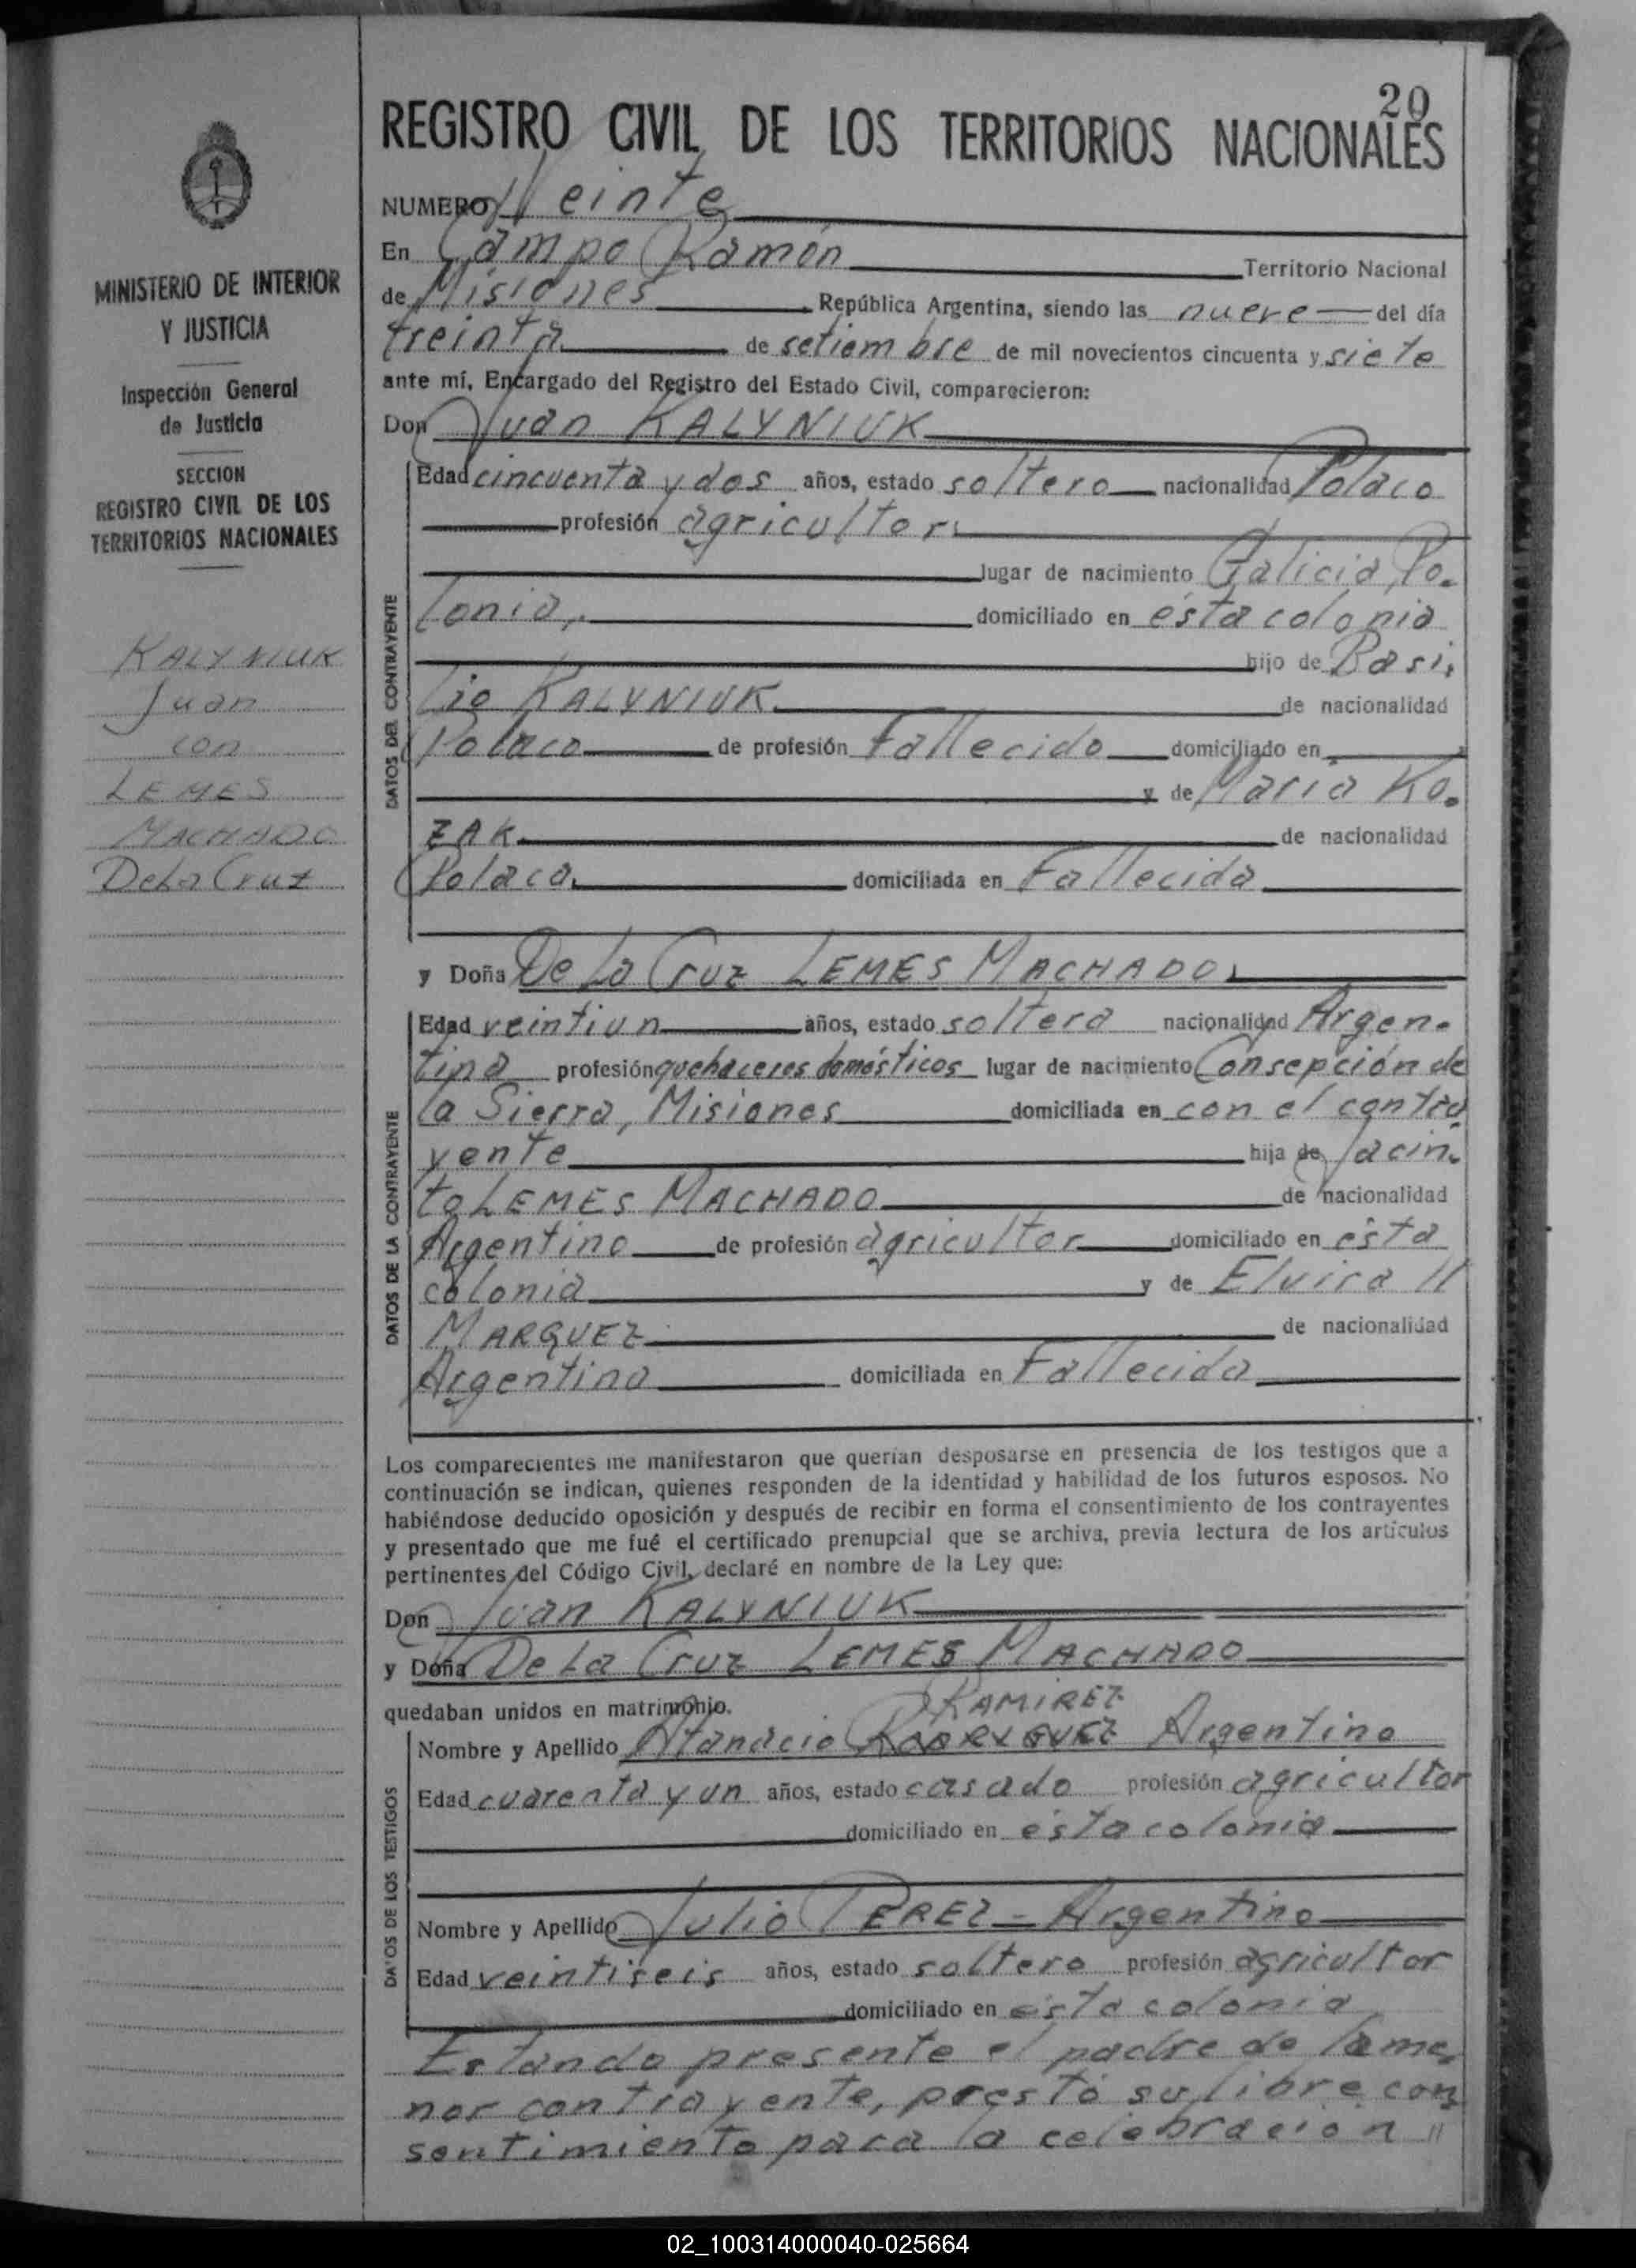 20
REGISTRO CIVIL DE LOS TERRITORIOS NACIONALES
MINISTERIO DE INTERIOR
Y JUSTICIA
Inspección General
de Justicia
SECCION
REGISTRO CIVIL DE LOS
TERRITORIOS NACIONALES
KALYNIUK
Juan
con
LEMES
MACHADO
De La Cruz
NUMERO Veinte
En Campo Ramón Territorio Nacional
de Misiones República Argentina, siendo las nueve del día
treinta de setiembre de mil novecientos cincuenta y siete
ante mí, Encargado del Registro del Estado Civil, comparecieron:
Don Juan KALYNIUK
DATOS DEL CONTRAYENTE
Edad cincuenta y dos años, estado soltero nacionalidad Polaco
profesión agricultor
lugar de nacimiento Galicia, Po-
lonia, domiciliado en ésta colonia
hijo de Basi-
lio KALYNIUK de nacionalidad
Polaco de profesión Fallecido domiciliado en
y de María KO-
ZAK de nacionalidad
Polaca domiciliada en Fallecida
y Doña De La Cruz LEMES MACHADO
DATOS DE LA CONTRAYENTE
Edad veintiun años, estado soltera nacionalidad Argen-
tina profesión quehaceres domésticos lugar de nacimiento Consepción de
la Sierra, Misiones domiciliada en con el contra-
yente hija de Jacin-
to LEMES MACHADO de nacionalidad
Argentino de profesión agricultor domiciliado en ésta
colonia y de Elvira //
MARQUEZ de nacionalidad
Argentina domiciliada en Fallecida
Los comparecientes me manifestaron que querían desposarse en presencia de los testigos que a
continuación se indican, quienes responden de la identidad y habilidad de los futuros esposos. No
habiéndose deducido oposición y después de recibir en forma el consentimiento de los contrayentes
y presentado que me fué el certificado prenupcial que se archiva, previa lectura de los artículos
pertinentes del Código Civil, declaré en nombre de la Ley que:
Don Juan KALYNIUK
y Doña De La Cruz LEMES MACHADO
quedaban unidos en matrimonio.
RAMIREZ
DATOS DE LOS TESTIGOS
Nombre y Apellido Atanacio RODRIGUEZ Argentino
Edad cuarenta y un años, estado casado profesión agricultor
domiciliado en ésta colonia
Nombre y Apellido Julio PEREZ - Argentino
Edad veintiseis años, estado soltero profesión agricultor
domiciliado en ésta colonia
Estando presente el padre de la me-
nor contrayente, prestó su libre con
sentimiento para la celebración //
02_100314000040-025664